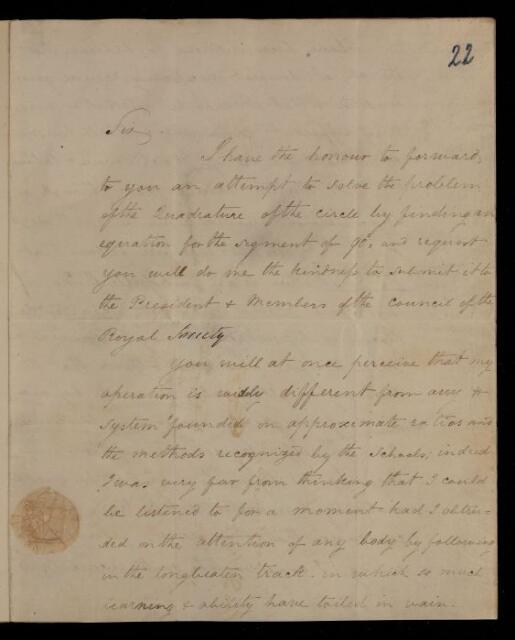 22
Sir,
I have the honour to forward,
to you an attempt to solve the problem
of the Quadrature of the circle by finding an
equation for the segment of 90°, and request
you will do me the kindness to submit it to
the President & Members of the council of the
Royal Society
You will at once perceive that my
operation is widely different from any
system founded on approximate ratios and
the methods recognized by the Schools; indeed
I was very far from thinking that I could
be listened to for a moment had I obtru=
ded on the attention of any body by following
in the long beaten track in which so much
learning & ability have toiled in vain.